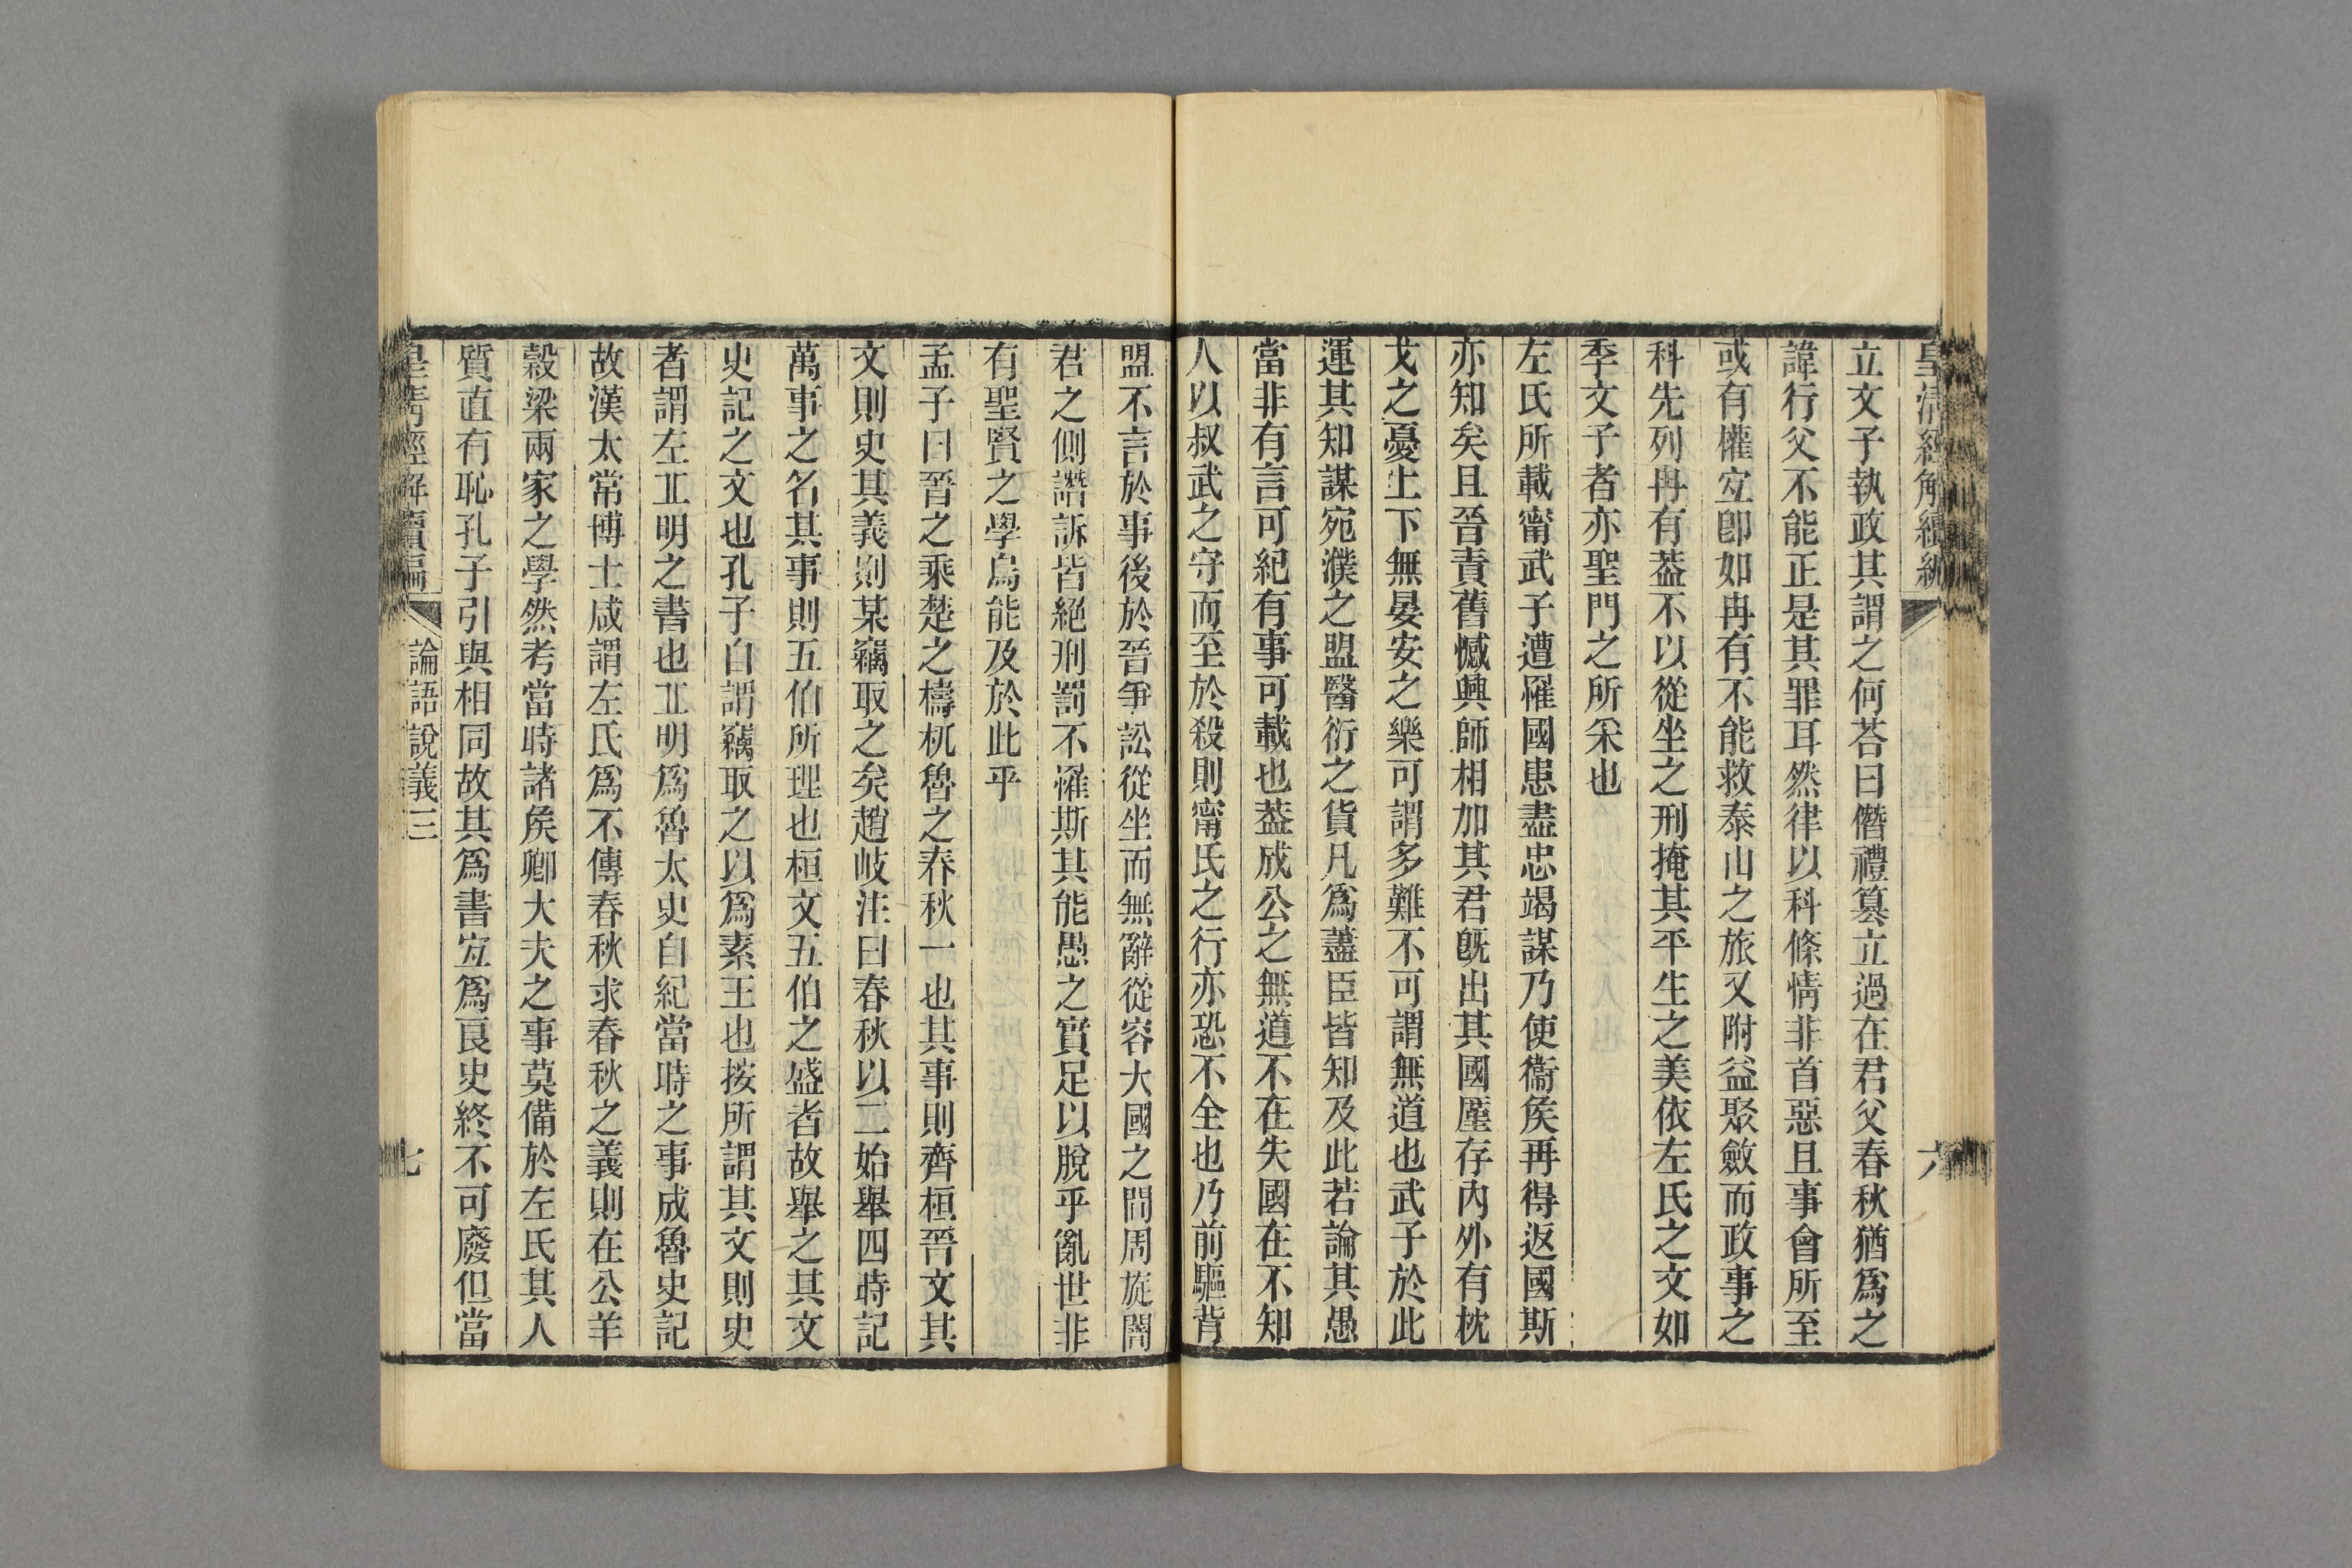 皇清經解續編
六
立文子執政其謂之何荅曰僭禮簒立過在君父春秋猶爲之
諱行父不能正是其罪耳然律以科條情非首惡且事會所至
或有權宐卽如冉有不能救泰山之旅又附益聚斂而政事之
科先列冉有葢不以從坐之刑掩其平生之美依左氏之文如
季文子者亦聖門之所采也
左氏所載甯武子遭罹國患盡忠竭謀乃使衞矦再得返國斯
亦知矣且晉責舊憾興師相加其君旣出其國廑存內外有枕
戈之憂上下無晏安之樂可謂多難不可謂無道也武子於此
運其知謀宛濮之盟醫衍之貨凡爲藎臣皆知及此若論其愚
當非有言可紀有事可載也葢成公之無道不在失國在不知
人以叔武之守而至於殺則甯氏之行亦恐不全也乃前驅背
盟不言於事後於晉爭訟從坐而無辭從容大國之間周旋闇
君之側譖訴皆絕刑罰不罹斯其能愚之實足以脫乎亂世非
有聖賢之學烏能及於此乎
孟子曰晉之乘楚之檮杌魯之春秋一也其事則齊桓晉文其
文則史其義則某竊取之矣趙岐注曰春秋以二始舉四時記
萬事之名其事則五伯所理也桓文五伯之盛者故舉之其文
史記之文也孔子自謂竊取之以爲素王也按所謂其文則史
者謂左丘明之書也丘明爲魯太史自紀當時之事成魯史記
故漢太常博士咸謂左氏爲不傳春秋求春秋之義則在公羊
穀梁兩家之學然考當時諸矦卿大夫之事莫備於左氏其人
質直有恥孔子引與相同故其爲書宐爲良史終不可廢但當
皇清經解續編
論語說義三
七